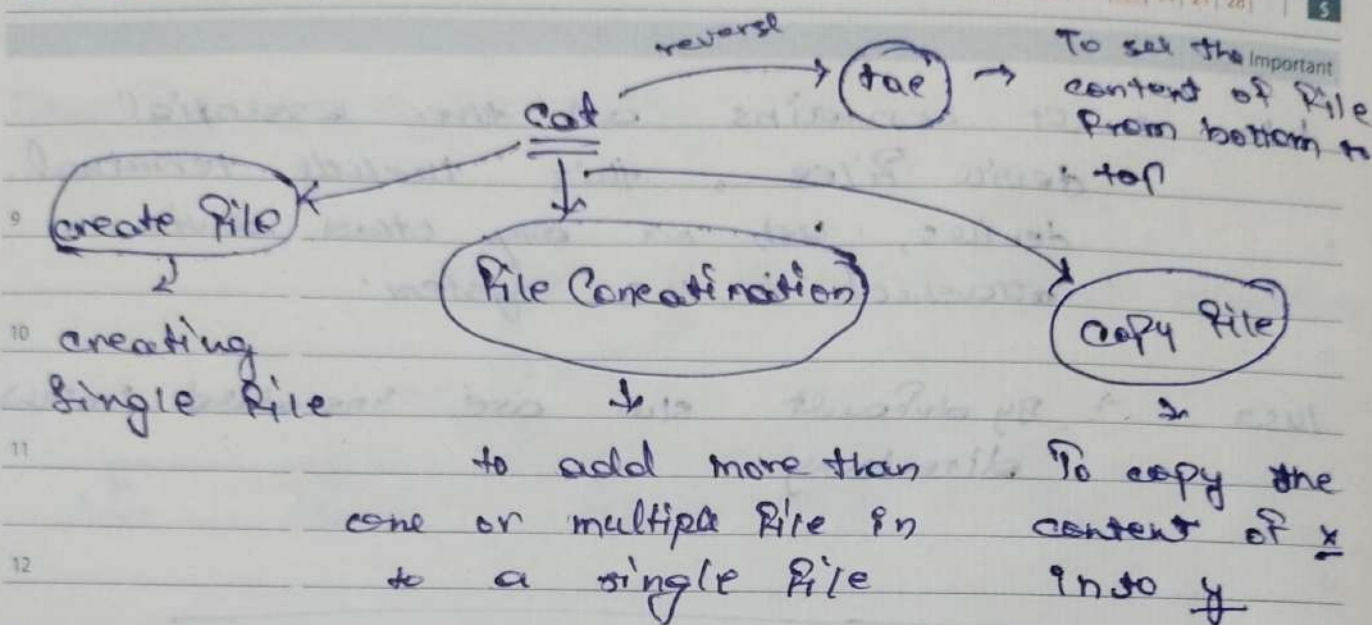 28 | 5
Important
cat
reverse
tac → To see the
content of file
from bottom to
top
9
create file
10 creating
single file
File Concatination
copy file
11 to add more than
one or multiple file in
12 to a single file
To copy the
content of x
into y